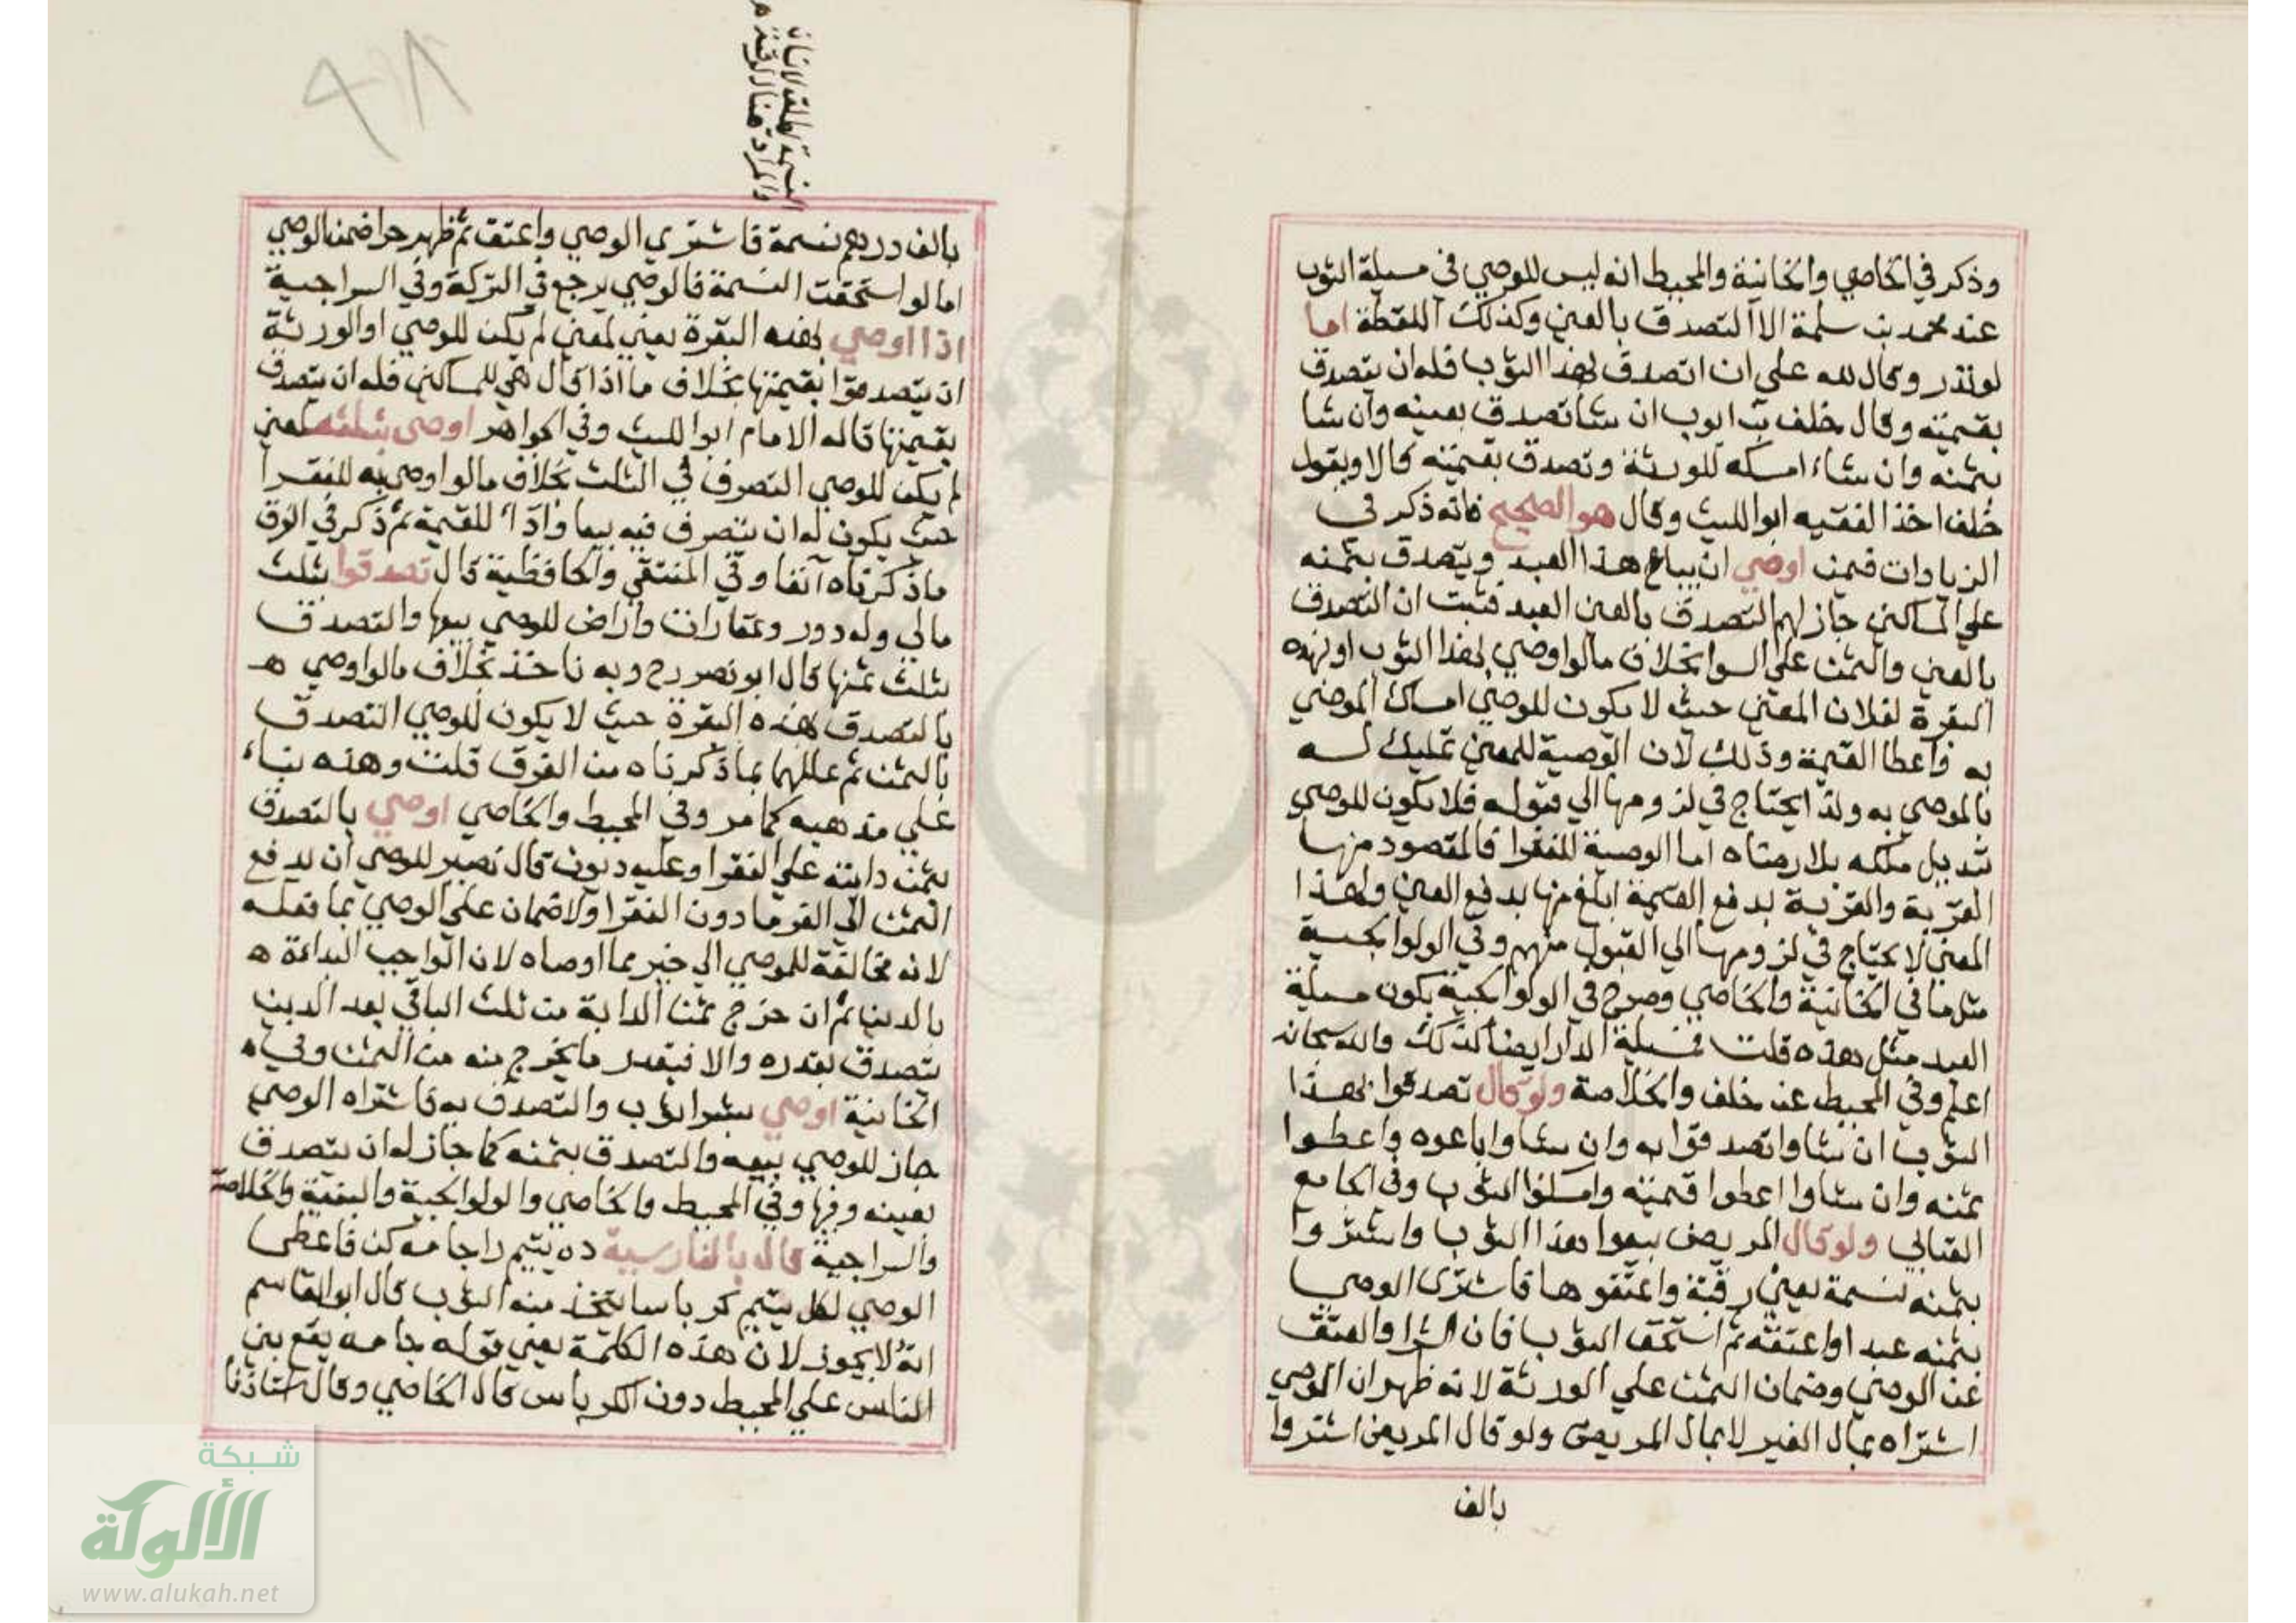 وذكر في الخاصي والخانية والمحيط انه ليس للوصي في مسيلة الثوب
عند محمد بن سلمة الا التصدق بالعين وكذلك اللقطة اما
لو نذر وقال لله علي ان اتصدق بهذا الثوب فله ان يتصدق
بقيمته وقال خلف بن ايوب ان شا تصدق بعينه وان شا
بثمنه وان شاء امسكه للورثة وتصدق بقيمته قالا وبقول
خلف اخذ الفقيه ابو الليث وقال هو الصحيح فانه ذكر في
الزيادات فيمن اوصي ان يباع هذا العبد ويتصدق بثمنه
علي المساكين جاز لهم التصدق بالعين العبد فثبت ان التصدق
بالعين والثمن علي السوا بخلاف ما لو اوصي بهذا الثوب او بهذه
البقرة لفلان المعين حيث لا يكون للوصي امساك الموصي
به واعطا القيمة وذلك لان الوصية للمعين تمليك له
بالموصي به ولذا يحتاج في لزومها الي قبوله فلا يكون للوصي
تبديل ملكه بلا رضاه اما الوصية للفقرا فالمقصود منها
القربة والقربة بدفع القيمة ابلغ منها بدفع العين ولهذا
المعني لا يحتاج في لزومها الي القبول منهم وفي الولوالجية
مثل ما في الخانية والخاصي وصرح في الولوالجية بكون مسيلة
العبد مثل هذه قلت فمسيلة الدار ايضا كذلك والله سبحانه
اعلم وفي المحيط عن خلف والخلاصة ولو قال تصدقوا بهذا
الثوب ان شاوا تصدقوا به وان شاوا باعوه واعطوا
ثمنه وان شاوا اعطوا قيمته وامسكوا الثوب وفي الجامع
العتابي ولو قال المريض بيعوا هذا الثوب واشتروا
بثمنه نسمة يعني رقبة واعتقوها فاشترى الوصي
بثمنه عبدا واعتقه ثم استحق الثوب فان الشرا والعتق
عن الوصي وضمان الثمن علي الورثة لانه ظهر ان الوصي
اشتراه بمال الغير لا بمال المريض ولو قال المريض اشتروا
بالف
النسمة تطلق الانسان
والمراد هنا الرقبة
بالف درهم نسمة فاشتري الوصي واعتق ثم ظهر حرا ضمن الوصي
اما لو استحقت النسمة فالوصي يرجع في التركة وفي السراجية
اذا اوصي بهذه البقرة يعني لمعين لم يكن للوصي او الورثة
ان يتصدقوا بقيمتها بخلاف ما اذا قال هي للمساكين فله ان يتصدق
بقيمتها قاله الامام ابو الليث وفي الجواهر اوصي بثلثه لمعين
لم يكن للوصي التصرف في الثلث بخلاف ما لو اوصي به للفقرا
حيث يكون له ان يتصرف فيه بيعا واداء للقيمة ثم ذكر في الفرق
ما ذكرناه آنفا وفي المنتقي والحافظية قال تصدقوا بثلث
مالي وله دور وعقارات واراض للوصي بيعها والتصدق
بثلث ثمنها قال ابو نصر رح وبه ناخذ بخلاف ما لو اوصي ه
بالتصدق بهذه البقرة حيث لا يكون للوصي التصدق
بالثمن ثم عللهما بما ذكرناه من الفرق قلت وهذه بناء
علي مذهبه كما مر وفي المحيط والخاصي اوصي بالتصدق
بثمن دابته علي الفقرا وعليه ديون قال نصير للوصي ان يدفع
الثمن الي الغرما دون الفقرا ولا ضمان علي الوصي بما فعله
لانه مخالفة للموصي الي خير مما اوصاه لان الواجب البداءة ه
بالدين ثم ان خرج ثمن الدابة من ثلث الباقي بعد الدين
يتصدق بقدره والا فبقدر ما يخرج منه من الثمن وفي ه
الخانية اوصي بشرا ثوب والتصدق به فاشتراه الوصي
جاز للوصي بيعه والتصدق بثمنه كما جاز له ان يتصدق
بعينه وفيها وفي المحيط والخاصي والولوالجية والبغية والخلاصة
والسراجية قال بالفارسية ده يتيم راجامه كن فاعطي
الوصي لكل يتيم كرباسا ليتخذ منه الثوب قال ابو القاسم
انه لا يجوز لان هذه الكلمة يعني قوله جامه يقع بين
الناس علي المحيط دون الكرباس قال الخاصي وقال استاذنا
شبكة
الألوكة
www.alukah.net